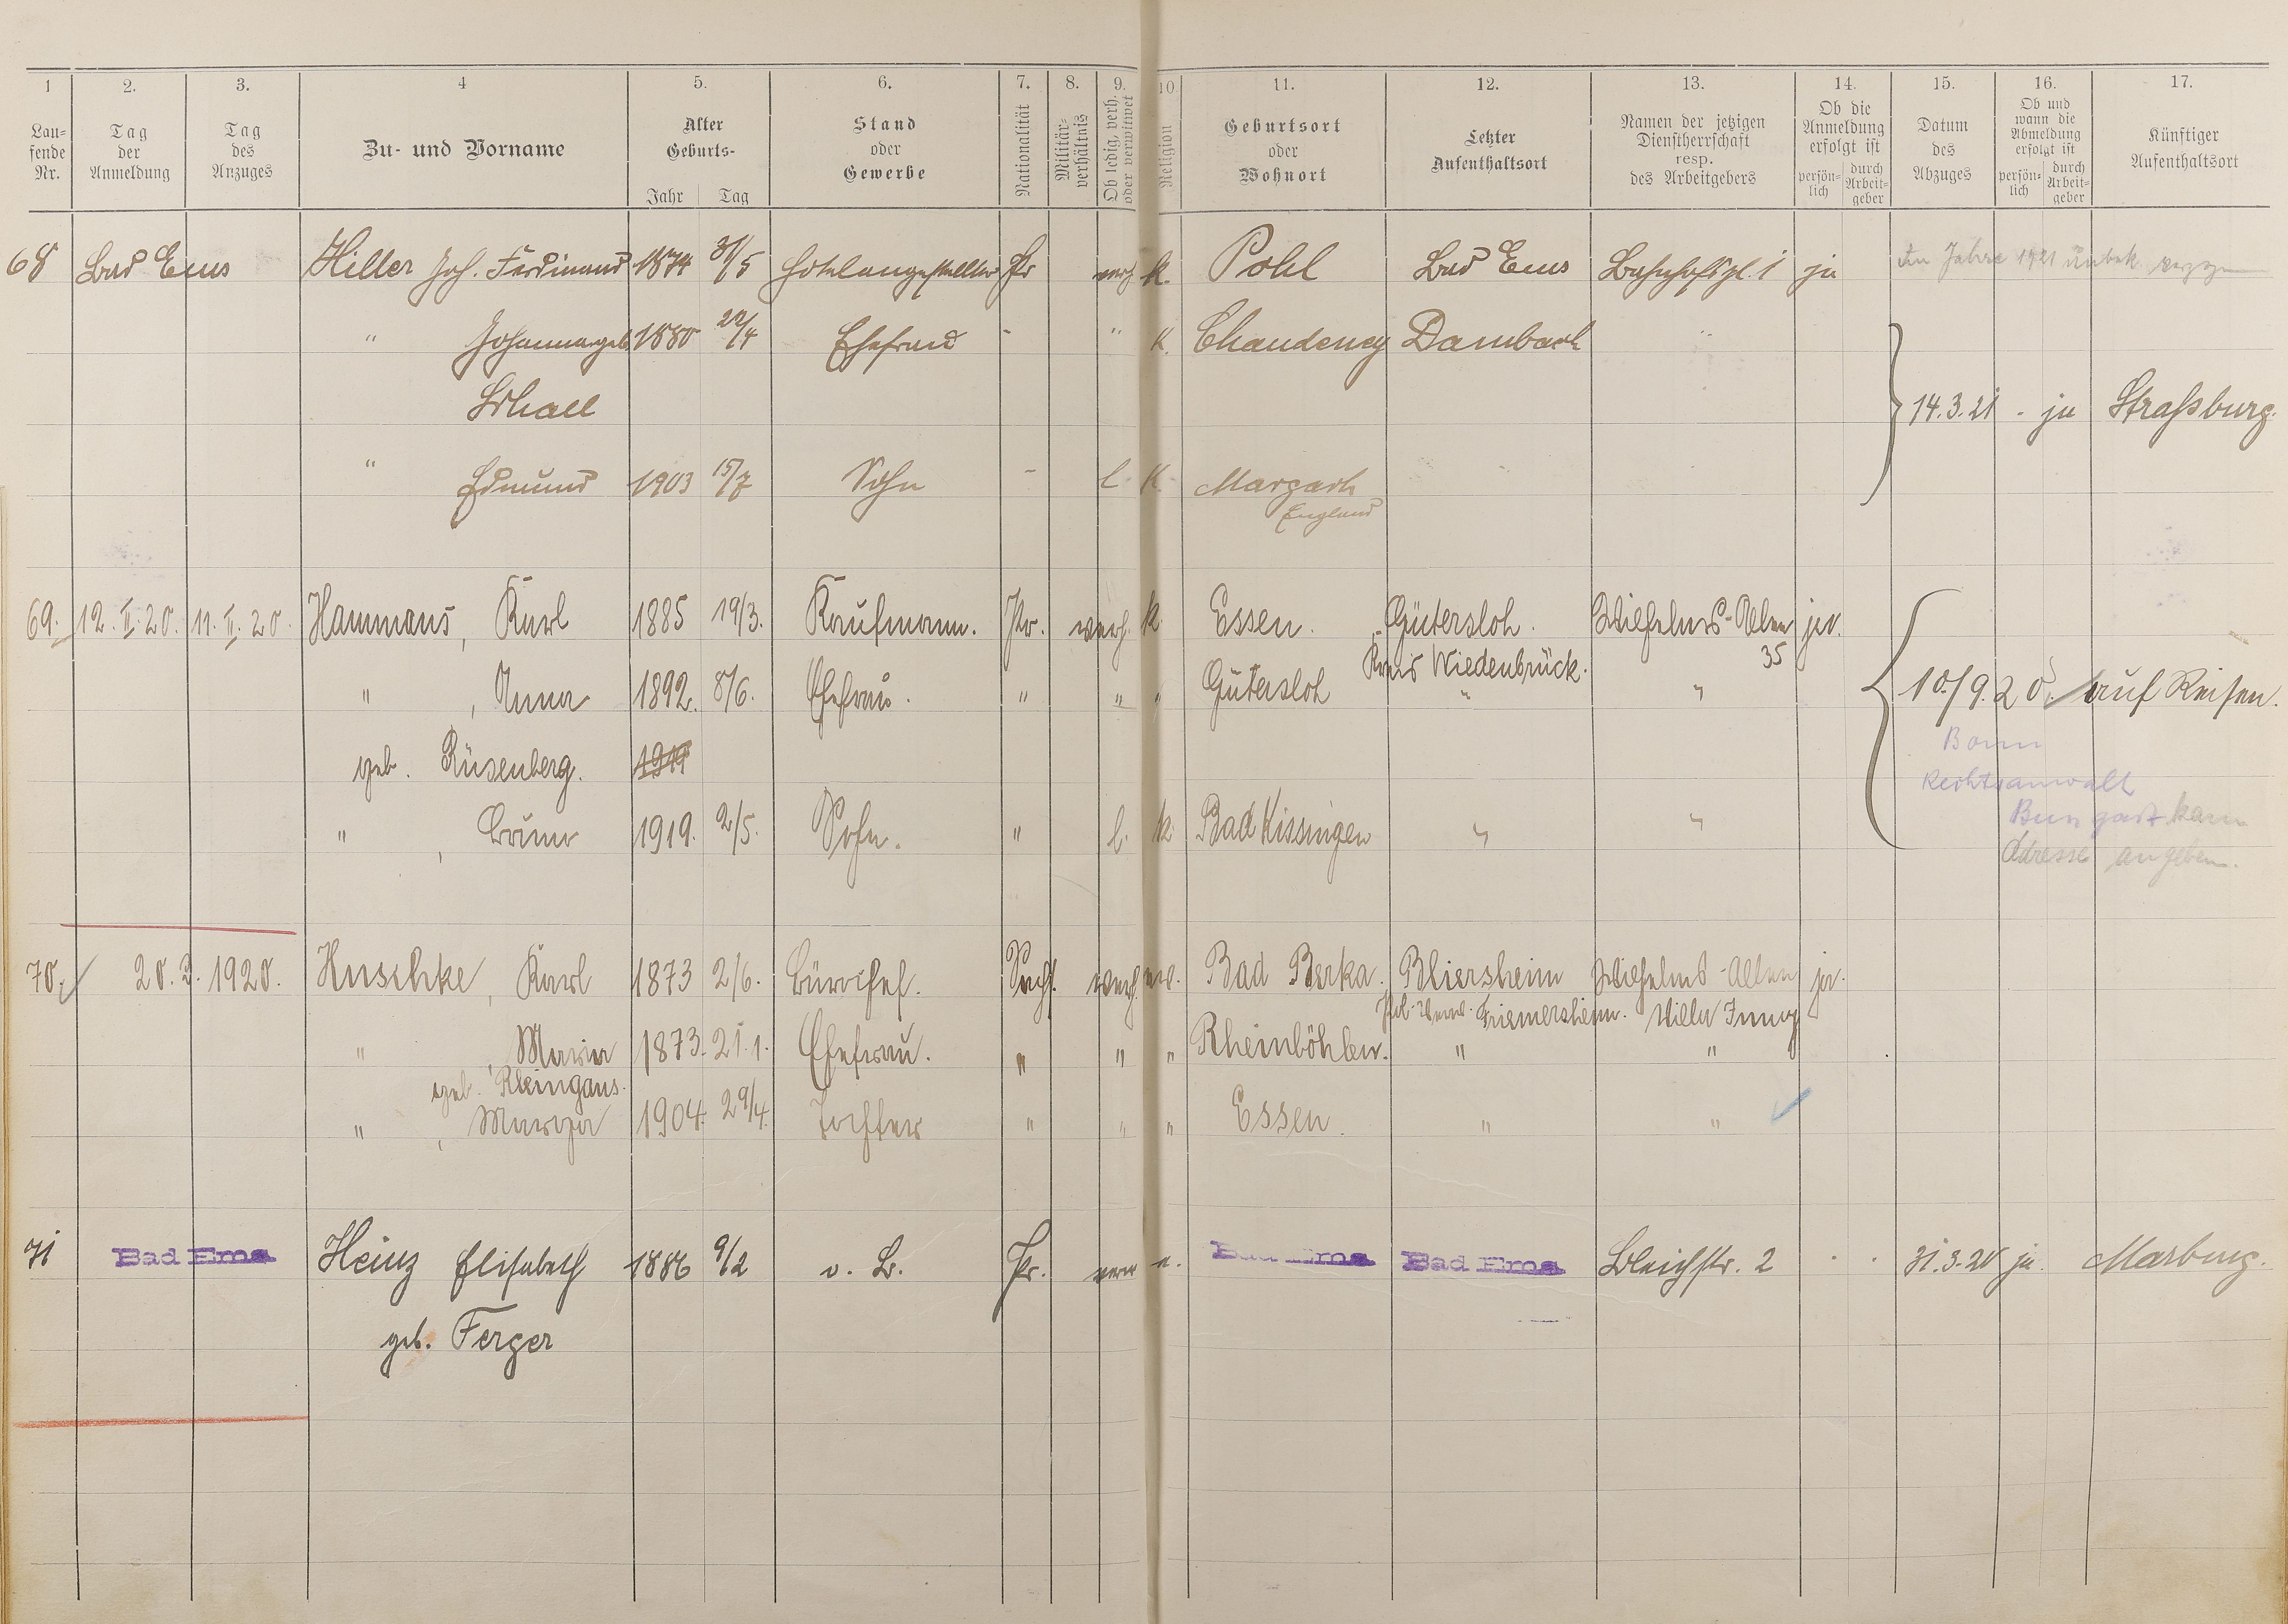 1 2. 3. 4 5. 6. 7. 8. 9. 10 11. 12. 13. 14. 15. 16. 17.
Lau-
fende
Nr.
Tag
der
Anmeldung
Tag
des
Anzuges
Zu- und Vorname
Alter
Geburts-
Jahr Tag
Stand
oder
Gewerbe
Nationalität
Militär-
verhältnis
Ob ledig, verh.
oder verwitwet
Religion
Geburtsort
oder
Wohnort
Letzter
Aufenthaltsort
Namen der jetzigen
Dienstherrschaft
resp.
des Arbeitgebers
Ob die
Anmeldung
erfolgt ist
persön-
lich
durch
Arbeit-
geber
Datum
des
Abzuges
Ob und
wann die
Abmeldung
erfolgt ist
persön-
lich
durch
Arbeit-
geber
Künftiger
Aufenthaltsort
68 Bad Ems Hiller Joh. Ferdinand 1874 31/5 Hotelangestellter Pr verh k. Pohl Bad Ems Bahnhofspl. 1 ja Im Jahre 1921 unbek.
" Johanna geb. 1880 22/4 Ehefrau - " K. Chaudeney Dambach "
Schall
14.3.21 - ja Straßburg.
" Edmund 1903 15/7 Sohn - l. K.
England
69. 12. II. 20. 11. II. 20. Hammans, Karl 1885 19/3. Kaufmann. Pr. verh. k. Essen. Gütersloh. Wilhelms-Allee ja.
Kreis Wiedenbrück. 35
" , Anna 1892. 8/6. Ehefrau. " " " Gütersloh " " 10/9.20. auf Reisen.
geb. Rüsenberg. 1919
Bonn
Rechtsanwalt
" , Bruno 1919. 2/5. Sohn. " l. k. Bad Kissingen " " Bungart kann
Adresse angeben.
70. 20. 2. 1920. Huschke, Karl 1873 2/6. Bürochef. Sachs. verh. ev. Bad Berka. Bliersheim Wilhelms-Allee ja.
Friemersheim. Villa Jung
" , Maria 1873. 21.1. Ehefrau. " " " Rheinböhlen. " "
geb. Rheingans.
" , Marga 1904. 29/4. Tochter " " " Essen. " "
71 Bad Ems Heinz Elisabeth 1886 9/2 o. B. Pr. verw e. Bad Ems Bad Ems Bleichstr. 2 - - 31.3.20 ja. Marburg.
geb. Ferger